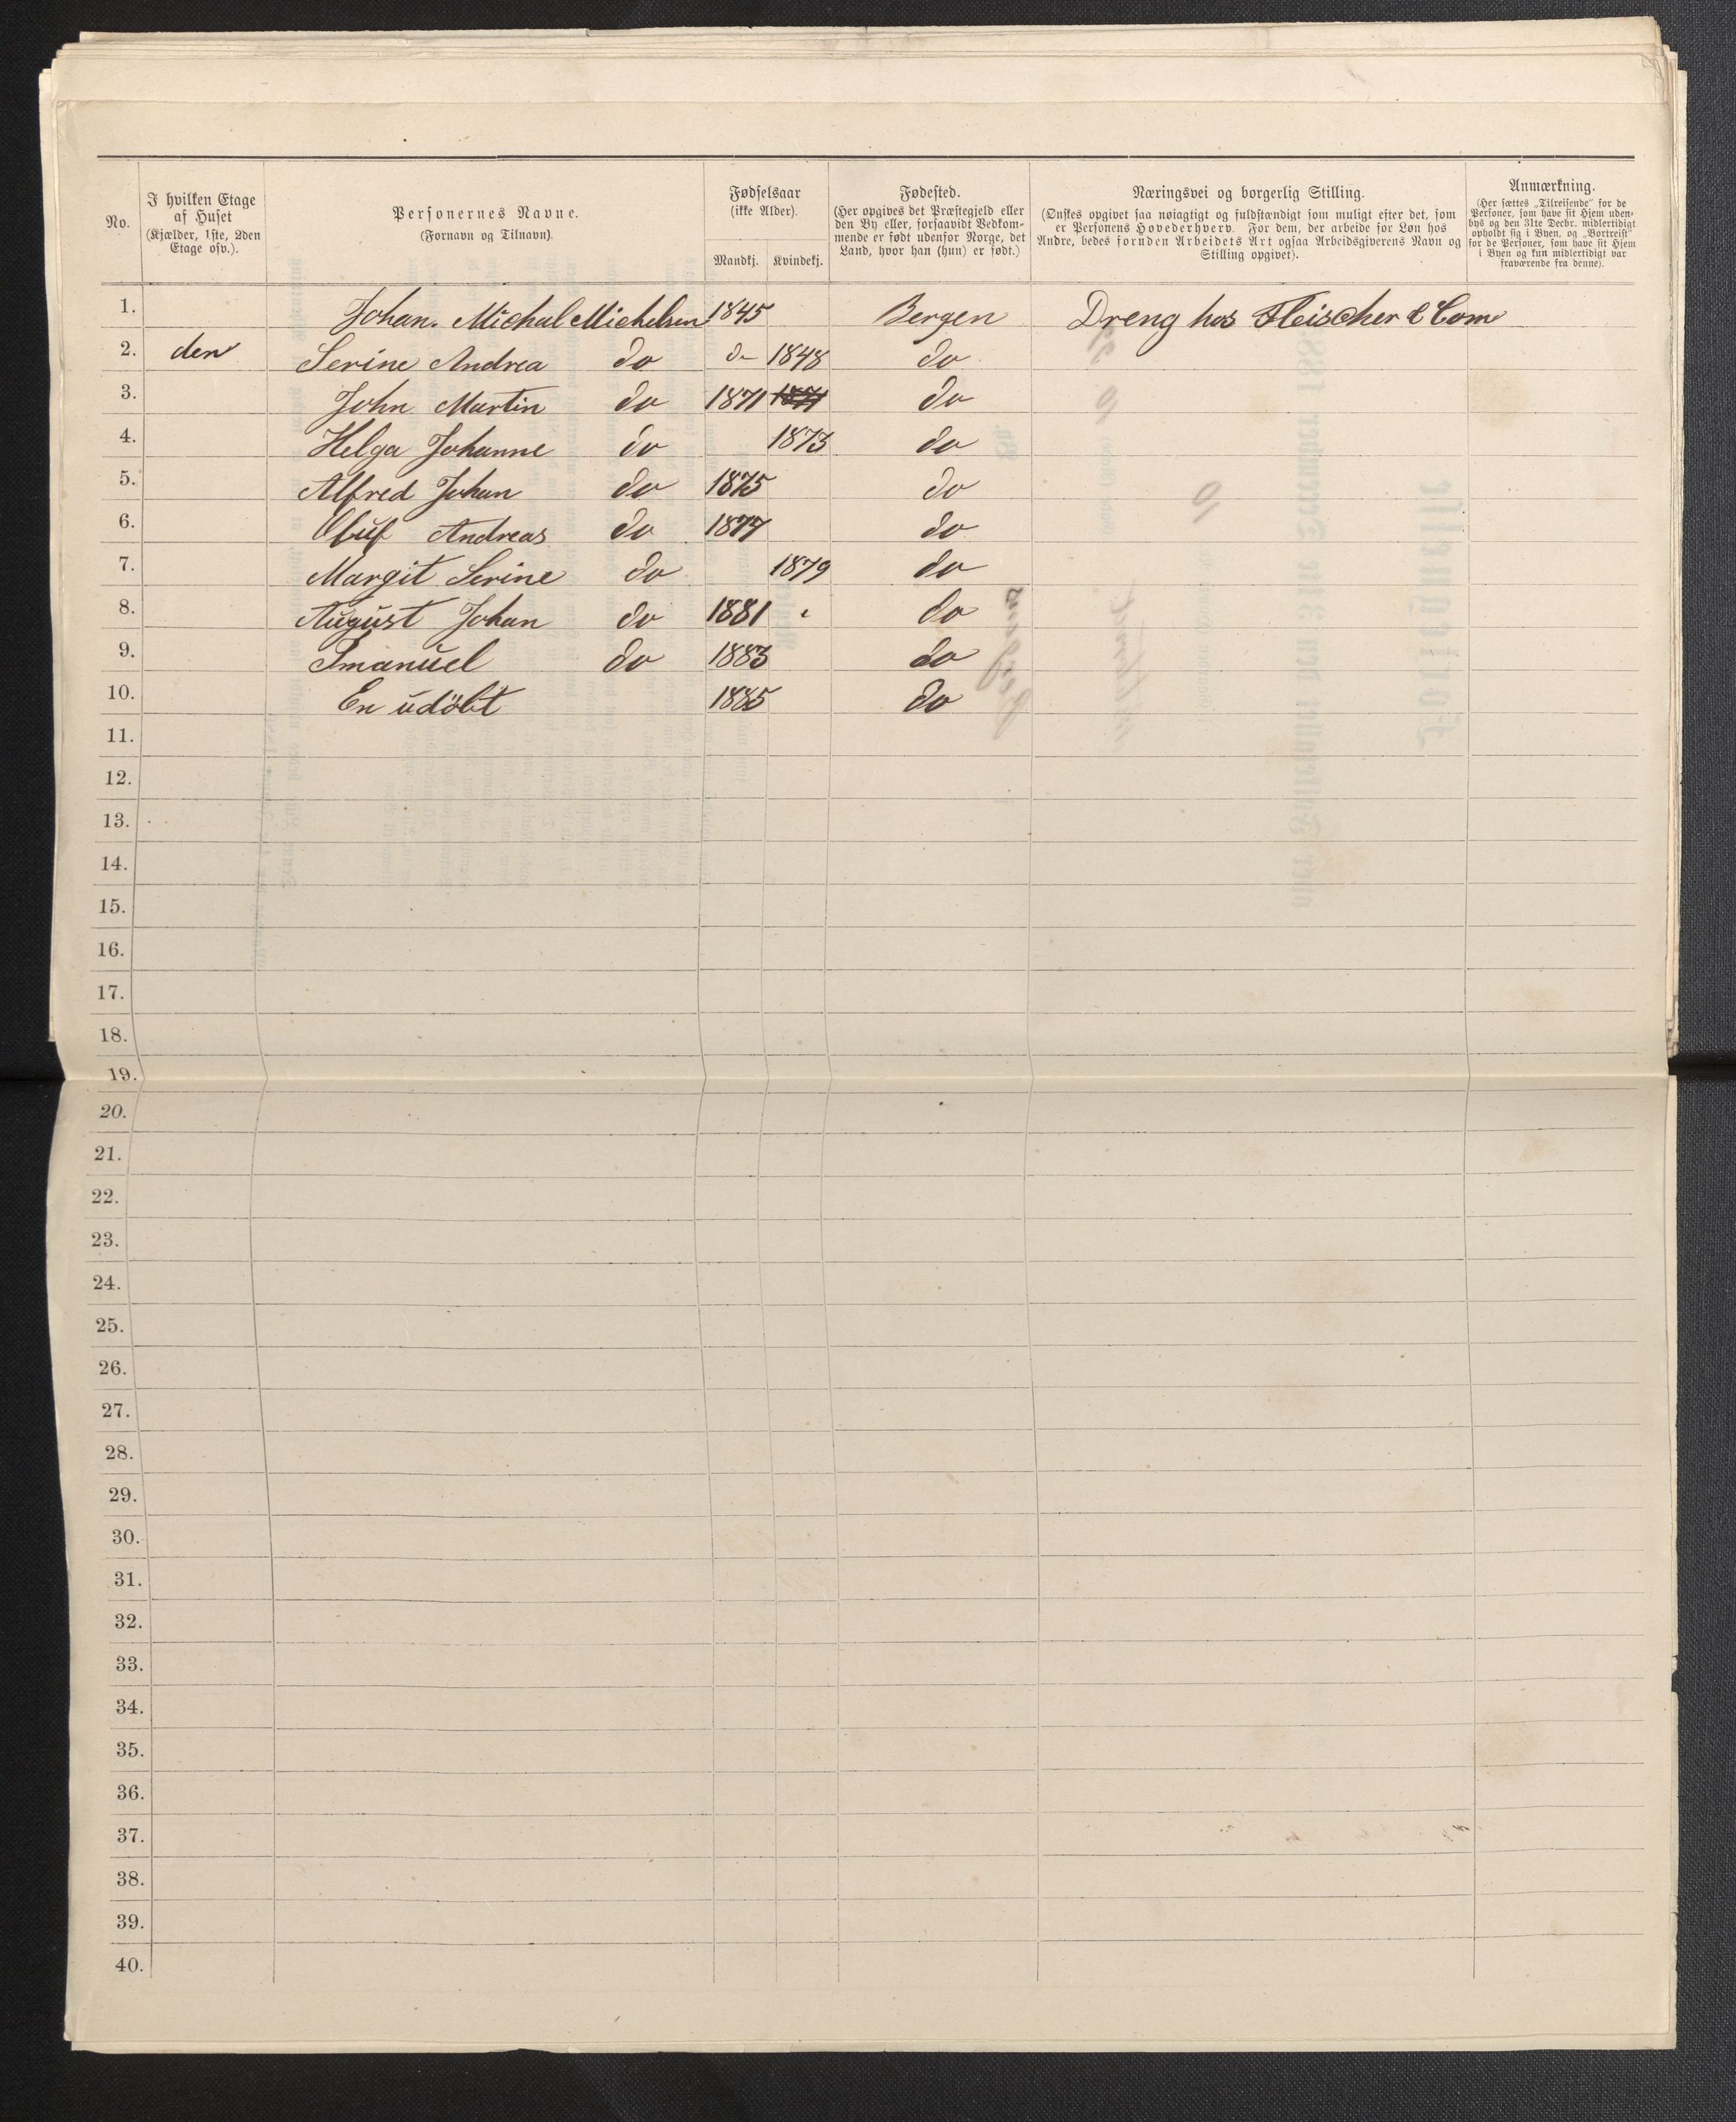 No.
I hvilken Etage
af Huset
(Kjælder, 1ste, 2den
Etage osv.).
Personernes Navne.
(Fornavn og Tilnavn).
Fødselsaar
(ikke Alder).
Mandkj. Kvindekj.
Fødested.
(Her opgives det Præstegjeld eller
den By eller, forsaavidt Vedkom-
mende er født udenfor Norge, det
Land, hvor han (hun) er født.)
Næringsvei og borgerlig Stilling.
(Ønskes opgivet saa nøiagtigt og fuldstændigt som muligt efter det, som
er Personens Hovederhverv. For dem, der arbeide for Løn hos
Andre, bedes fornden Arbeidets Art ogsaa Arbeidsgiverens Navn og
Stilling opgivet).
Anmærkning.
(Her sættes „Tilreisende" for de
Personer, som have sit Hjem uden-
bys og den 31te Decbr. midlertidigt
opholdt sig i Byen, og „Bortreist"
for de Personer, som have sit Hjem
i Byen og kun midlertidigt var
fraværende fra denne).
1. Johan. Michal Michelsen 1845 Bergen Dreng hos Fleischer & Com
2. den Serine Andrea do d– 1848 do
3. John Martin do 1871 1871 do
4. Helga Johanne do 1873 do
5. Alfred Johan do 1875 do
6. Oluf Andreas do 1877 do
7. Margit Serine do 1879 do
8. August Johan do 1881 do
9. Imanuel do 1883 do
10. En udöbt 1885 do
11.
12.
13.
14.
15.
16.
17.
18.
19.
20.
21.
22.
23.
24.
25.
26.
27.
28.
29.
30.
31.
32.
33.
34.
35.
36.
37.
38.
39.
40.